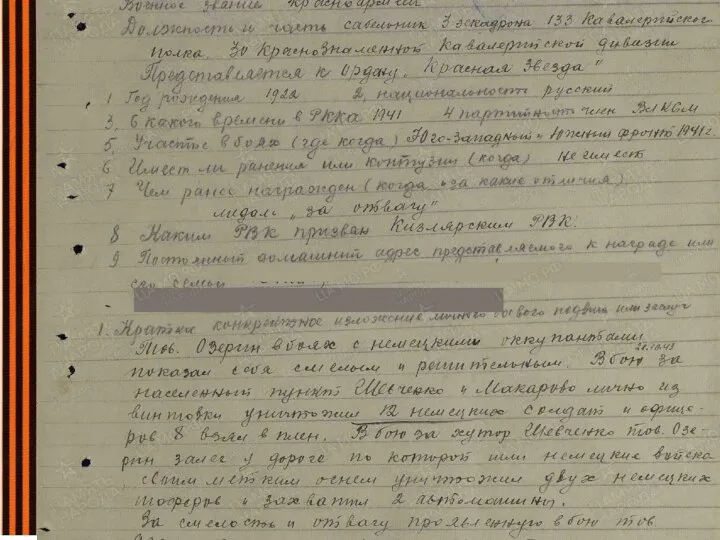 Военное звание красноармеец
Должность и часть сабельник 3 эскадрона 133 Кавалерийского
полка, 30 Краснознаменной Кавалерийской дивизии
Представляется к Ордену „Красная Звезда"
1 Год рождения 1922 2. национальность русский
3. С какого времени в РККА 1941 4 партийность член ВЛКСМ
5. Участие в боях (где когда) Юго-Западный и Южный фронт 1941 г.
6 Имеет ли ранения или контузии (когда) не имеет
7 Чем ранее награжден (когда и за какие отличия)
медаль „за отвагу"
8 Каким РВК призван Кизлярским РВК.
9 Постоянный домашний адрес представляемого к награде или
его семьи
1. Краткое конкретное изложение личного боевого подвига или заслуг
Тов. Озерин в боях с немецкими оккупантами
показал себя смелым и решительным. В бою за
населенный пункт Шевченко и Макарово лично из
винтовки уничтожил 12 немецких солдат и офице-
ров 8 взял в плен. В бою за хутор Шевченко тов. Озе-
рин залег у дороге по которой шли немецкие войска
своим метким огнем уничтожил двух немецких
шоферов и захватил 2 автомашины.
За смелость и отвагу проявленную в бою тов.